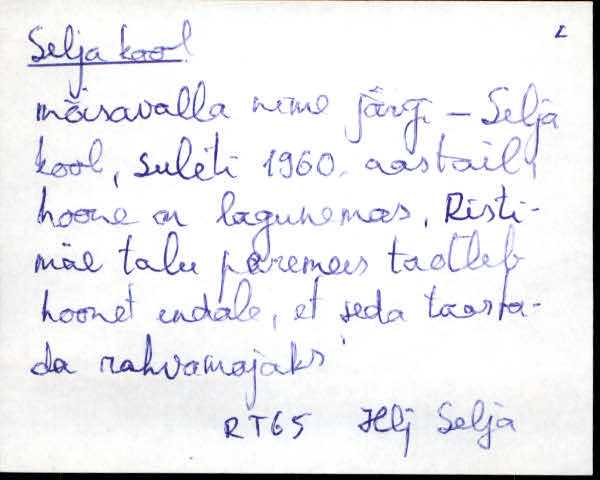 2
Selja kool
mõisavalla nime järgi – Selja
kool, suleti 1960. aastail,
hoone on lagunemas, Risti-
mäe talu peremees taotleb
hoonet endale, et seda taasta-
da rahvamajaks
RT65 Hlj Selja